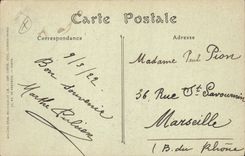 Carte Postale
Correspondance
Adresse
9/3/22
Bon souvenir
Marthe
Madame Paul Pion
36, Rue St Savournin
Marseille
(B. du Rhône)